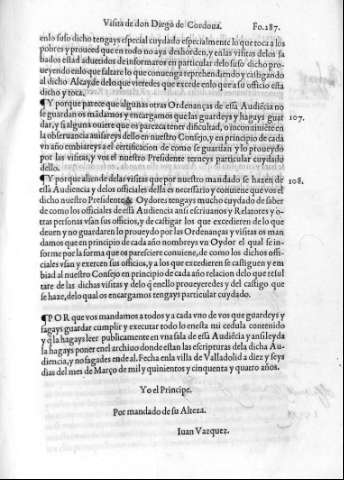 Visita de don Diego de Cordoua. Fo.187.
enlo suso dicho tengays especial cuydado especialmente lo que toca a los
pobres y proueed que en todo no aya deshorden, y enlas visitas delos sa
bados estad aduertidos de informaros en particular delo suso dicho pro-
ueyendo enlo que faltare lo que conuenga reprehendiendo y castigando
al dicho Alcayde delo que vieredes que excede enlo que a su officio esta
dicho y toca.
¶Y porque parece que algunas otras Ordenanças de essa Audiēcia no
se guardan os mādamos y encargamos que las guardeys y hagays guar 107.
dar, y si alguna ouiere que os parezca tener difficultad, o inconuiniēte en
la obseruancia auisareys dello en nuestro Consejo, y en principio de cada
vn año embiareys a el certificacion de como se guardan y lo proueydo
por las visitas, y vos el nuestro Presidente terneys particular cuydado
dello.
¶Y porque aliende delas visitas que por nuestro mandado se hazen de 108.
essa Audiencia y delos officiales della es necessario y conuiene que vos el
dicho nuestro Presidente & Oydores tengays mucho cuydado de saber
de como los officiales de essa Audiencia ansi escriuanos y Relatores y o-
tras personas vsan sus officios, y de castigar los que excedieren delo que
deuen y no guardaren lo proueydo por las Ordenanças y visitas os man
damos que en principio de cada año nombreys vn Oydor el qual se in-
forme por la forma que os paresciere conuiene, de como los dichos offi-
ciales vsan y exercen sus officios, y a los que excedieren se castiguen y em
biad al nuestro Consejo en principio de cada año relacion delo que resul
tare de las dichas visitas y delo q̄ enello proueyeredes y del castigo que
se haze, delo qual os encargamos tengays particular cuydado.
¶POR que vos mandamos a todos y a cada vno de vos que guardeys y
hagays guardar cumplir y executar todo lo enesta mi cedula contenido
y q̄ la hagays leer publicamente en vna sala de essa Audiēcia y ansi leyda
la hagays poner enel archiuo donde estan las escripturas dela dicha Au-
diencia, y no fagades ende al. Fecha enla villa de Valladolid a diez y seys
dias del mes de Março de mil y quinientos y cinquenta y quatro años.
Yo el Principe.
Por mandado de su Alteza.
Iuan Vazquez.